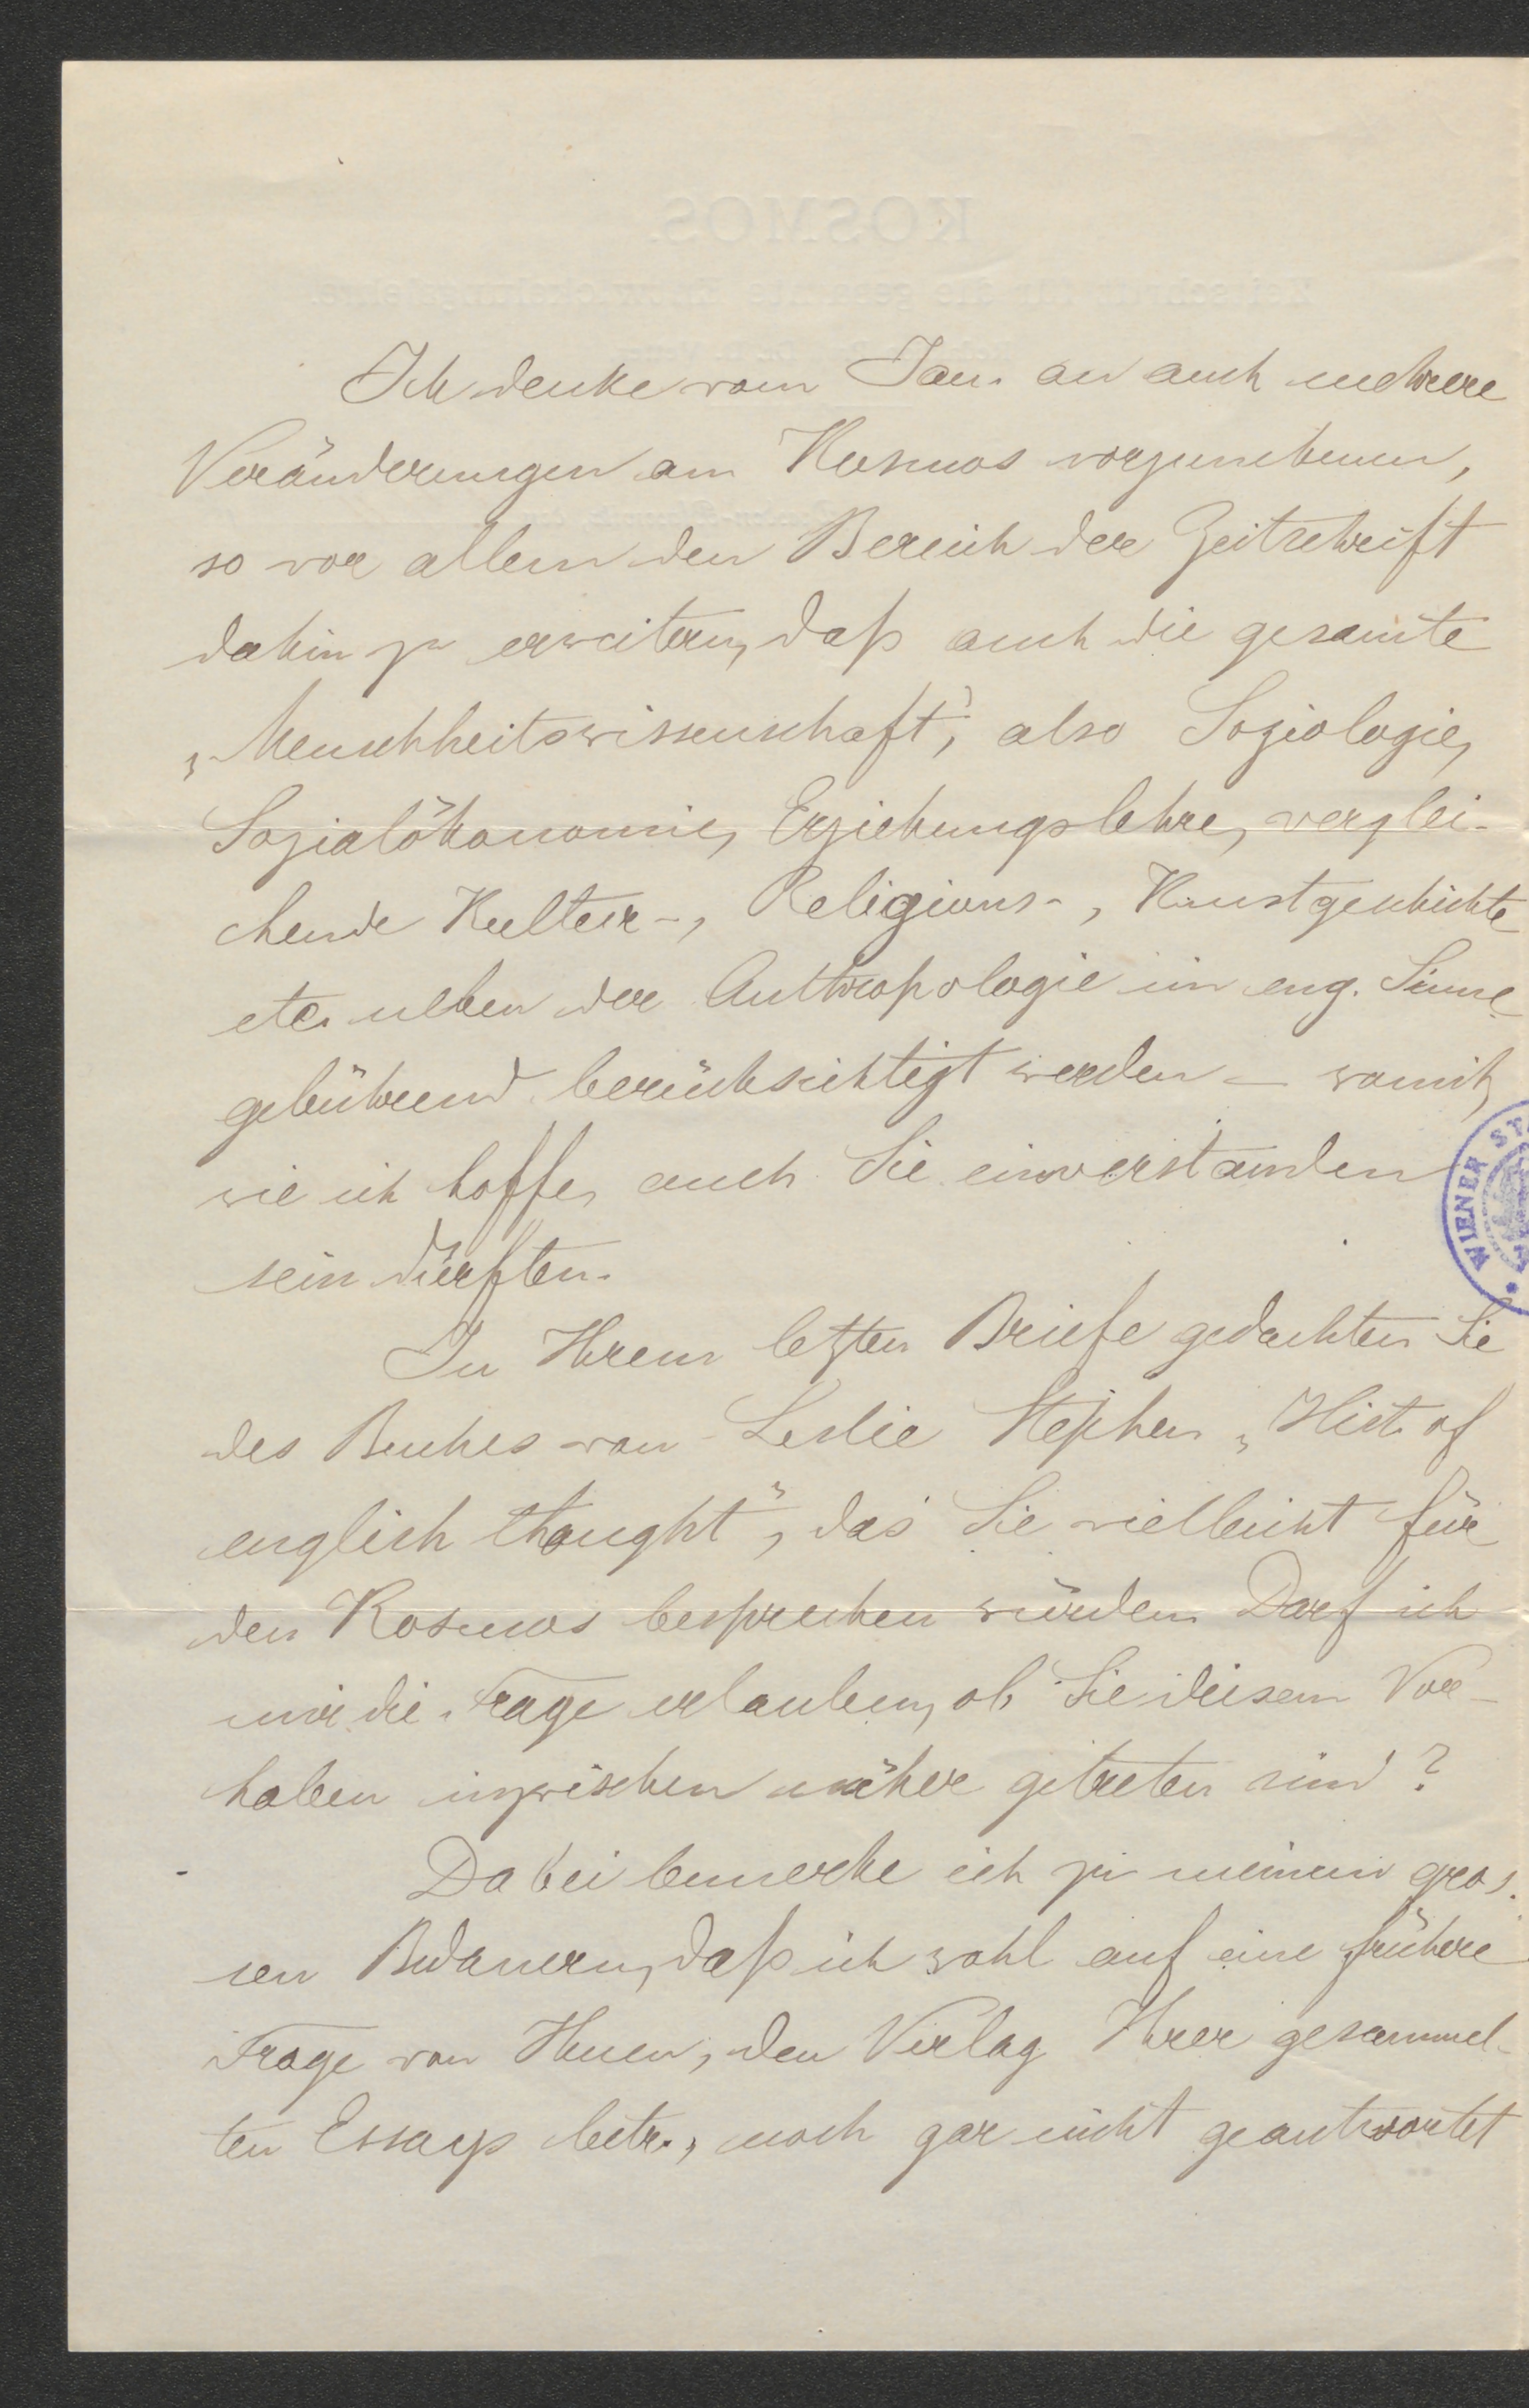 Ich denke vom Jan. an auch mehrere
Veränderungen am Kosmos vorzunehmen,
so vor allem den Bereich der Zeitschrift
dahin zu erweitern, daß auch die gesamte
„Menschheitswissenschaft“, also Soziologie,
Sozialökonomie, Erziehungslehre, verglei-
chende Kultur-, Religions-, Kunstgeschichte
etc. neben der Anthropologie im eng. Sinne
gebührend berücksichtigt werden – womit,
wie ich hoffe, auch Sie einverstanden
sein dürften.
In Ihrem letzten Briefe gedachten Sie
des Buches von Leslie Stephen „Hist. of
english thought“, das Sie vielleicht für
den Kosmos besprechen würden. Darf ich
mir die Frage erlauben, ob Sie diesem Vor-
haben inzwischen näher getreten sind?
Dabei bemerke ich zu meinem gros-
sen Bedauern, daß ich wohl auf eine frühere
Frage von Ihnen, den Verlag Ihrer gesammel-
ten Essays betr., noch gar nicht geantwortet
WIENER ST
KOSMOS.
Zeitschrift für die gesamte Entwickelungslehre.